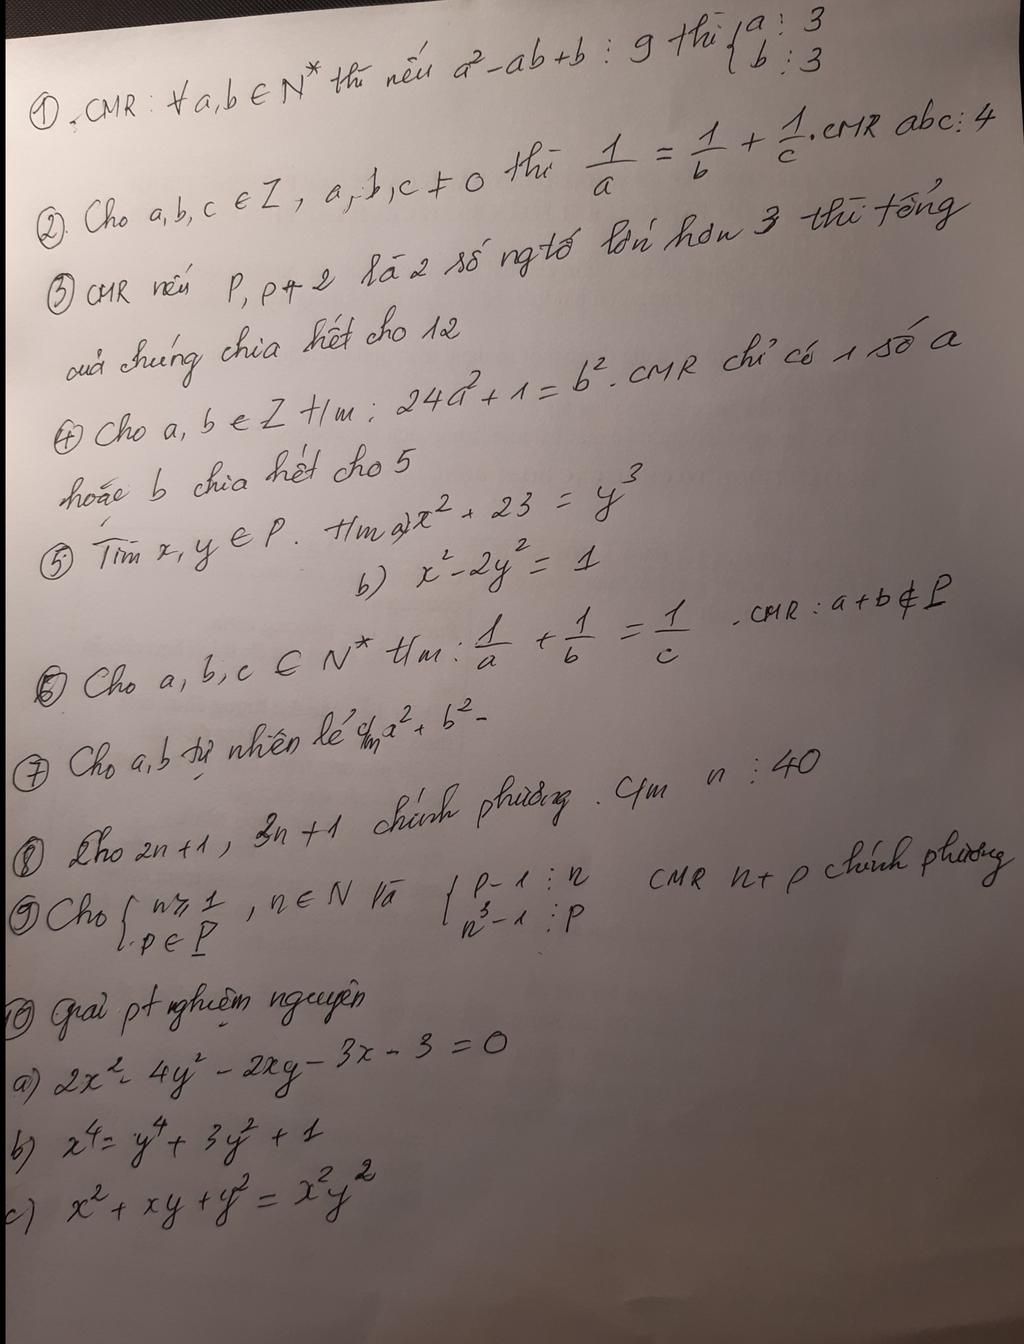 ①. CMR: ∀a,b ∈ N* thì nếu a²-ab+b ⋮ 9 thì { a ⋮ 3
b ⋮ 3
②. Cho a,b,c ∈ Z, a,b,c ≠ 0 thì 1/a = 1/b + 1/c. CMR abc ⋮ 4
③ CMR nếu P, P+2 là 2 số ng tố lớn hơn 3 thì tổng
của chúng chia hết cho 12
④ Cho a, b ∈ Z t/m: 24a²+1=b². CMR chỉ có 1 số a
hoặc b chia hết cho 5
⑤ Tìm x, y ∈ P. t/m a) x² + 23 = y³
b) x²-2y² = 1
⑥ Cho a, b, c ∈ N* t/m: 1/a + 1/b = 1/c. CMR: a+b ∉ P
⑦ Cho a,b tự nhiên lẻ c/m a² + b² -
⑧ Cho 2n+1, 3n+1 chính phương. C/m n ⋮ 40
⑨ Cho { n ≥ 1 , n ∈ N và { p-1 ⋮ n CMR n+p chính phương
p ∈ P n³-1 ⋮ p
⑩ Giải pt nghiệm nguyên
a) 2x²- 4y² - 2xy - 3x - 3 = 0
b) x⁴= y⁴+ 3y² + 1
c) x² + xy + y² = x²y²